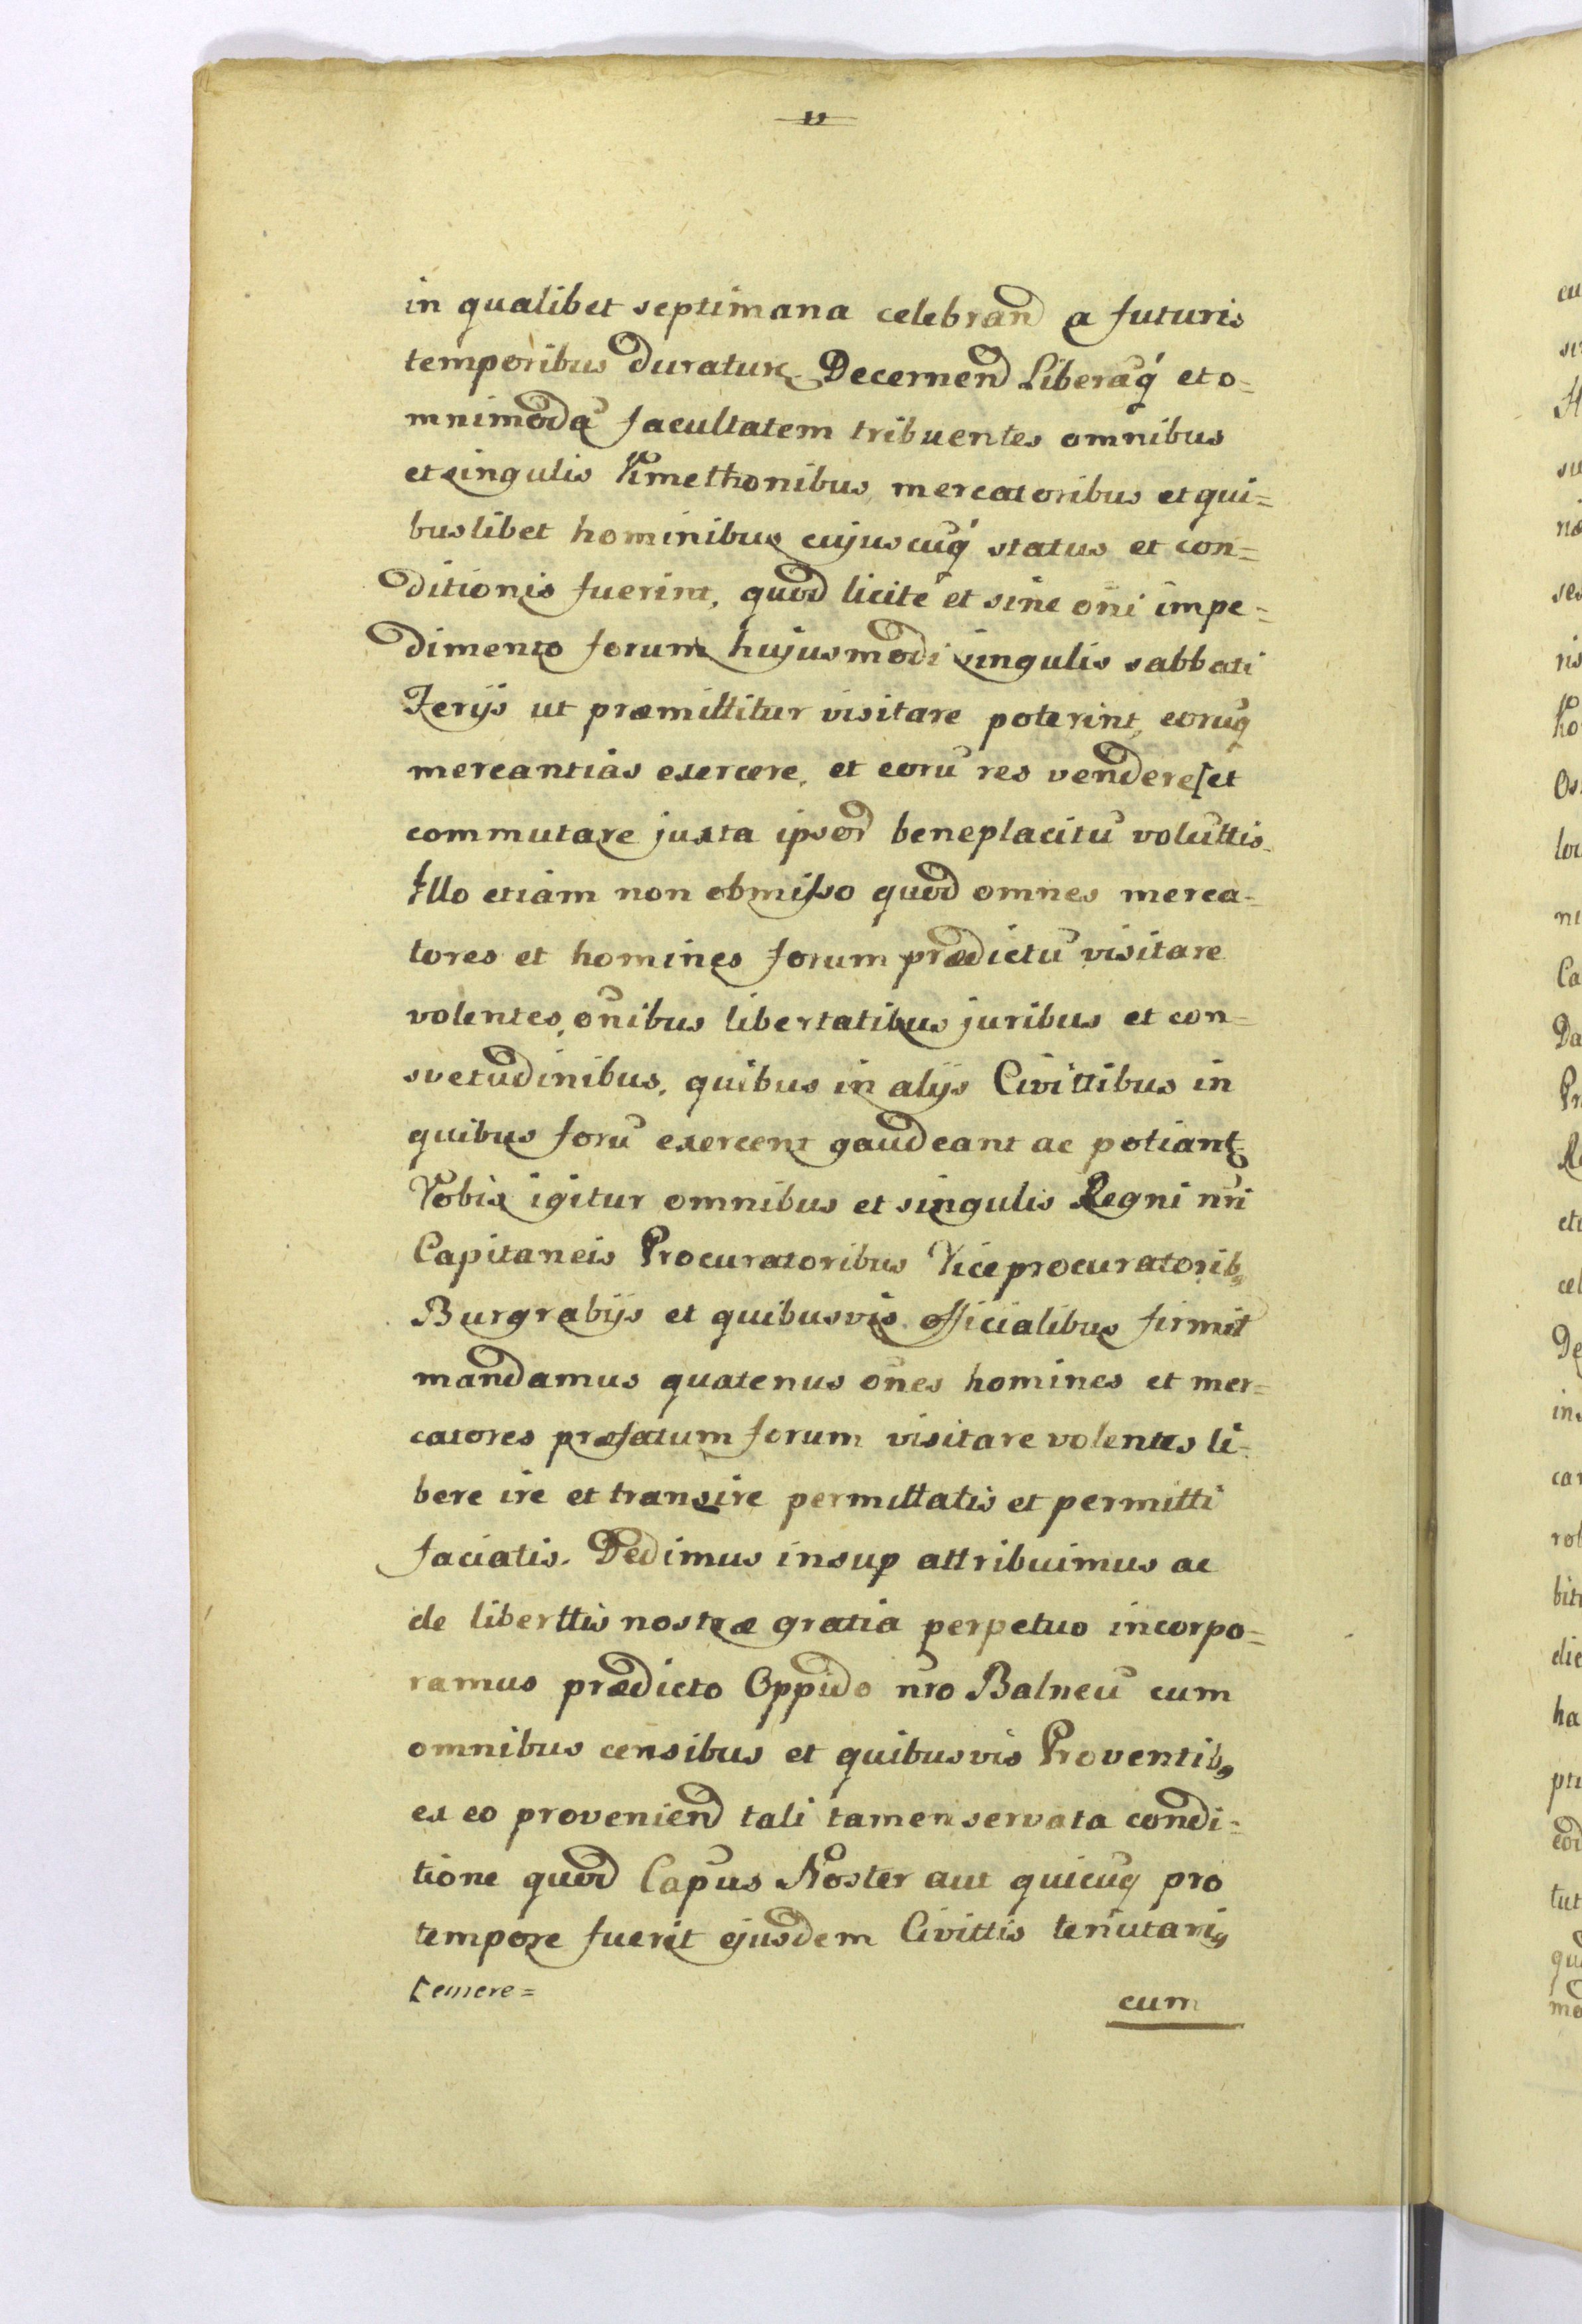 11
in qualibet septimana celebrand a futuris
temporibus duratur. Decernend Liberaq́ et o=
mnimodā facultatem tribuentes omnibus
et singulis Kmethonibus, mercatoribus et qui=
buslibet hominibus cujuscuq́ status et con=
ditionis fuerint, quod licitè et sine oñi impe=
dimento forum hujusmodi singulis sabbati
Ferijs ut præmittitur visitare poterint, eoruq
mercantias exercere, et eorū res vendere [et
commutare juxta ipsor beneplacitū voluttis.
Illo etiam non obmisso quod omnes merca=
tores et homines forum prædictū visitare
volentes, oñibus libertatibus juribus et con=
svetudinibus, quibus in alijs Civittibus in
quibus forū exercent gaudeant ac potiant
Vobis igitur omnibus et singulis Regni nr̄i
Capitaneis Procuratoribus Viceprocuratorib,
Burgrabijs et quibusvis officialibus firmit
mandamus quatenus oñes homines et mer=
catores præfatum forum visitare volentes li=
bere ire et transire permittatis et permitti
faciatis. Dedimus insup attribuimus ac
de liberttis nostræ gratia perpetuo incorpo=
ramus prædicto Oppido nr̄o Balneū cum
omnibus censibus et quibusvis Proventib,
ex eo proveniend tali tamen servata condi=
tione quod Capūs Noster aut quicuq pro
tempore fuerit ejusdem Civittis tenutari,
[emere=
cum